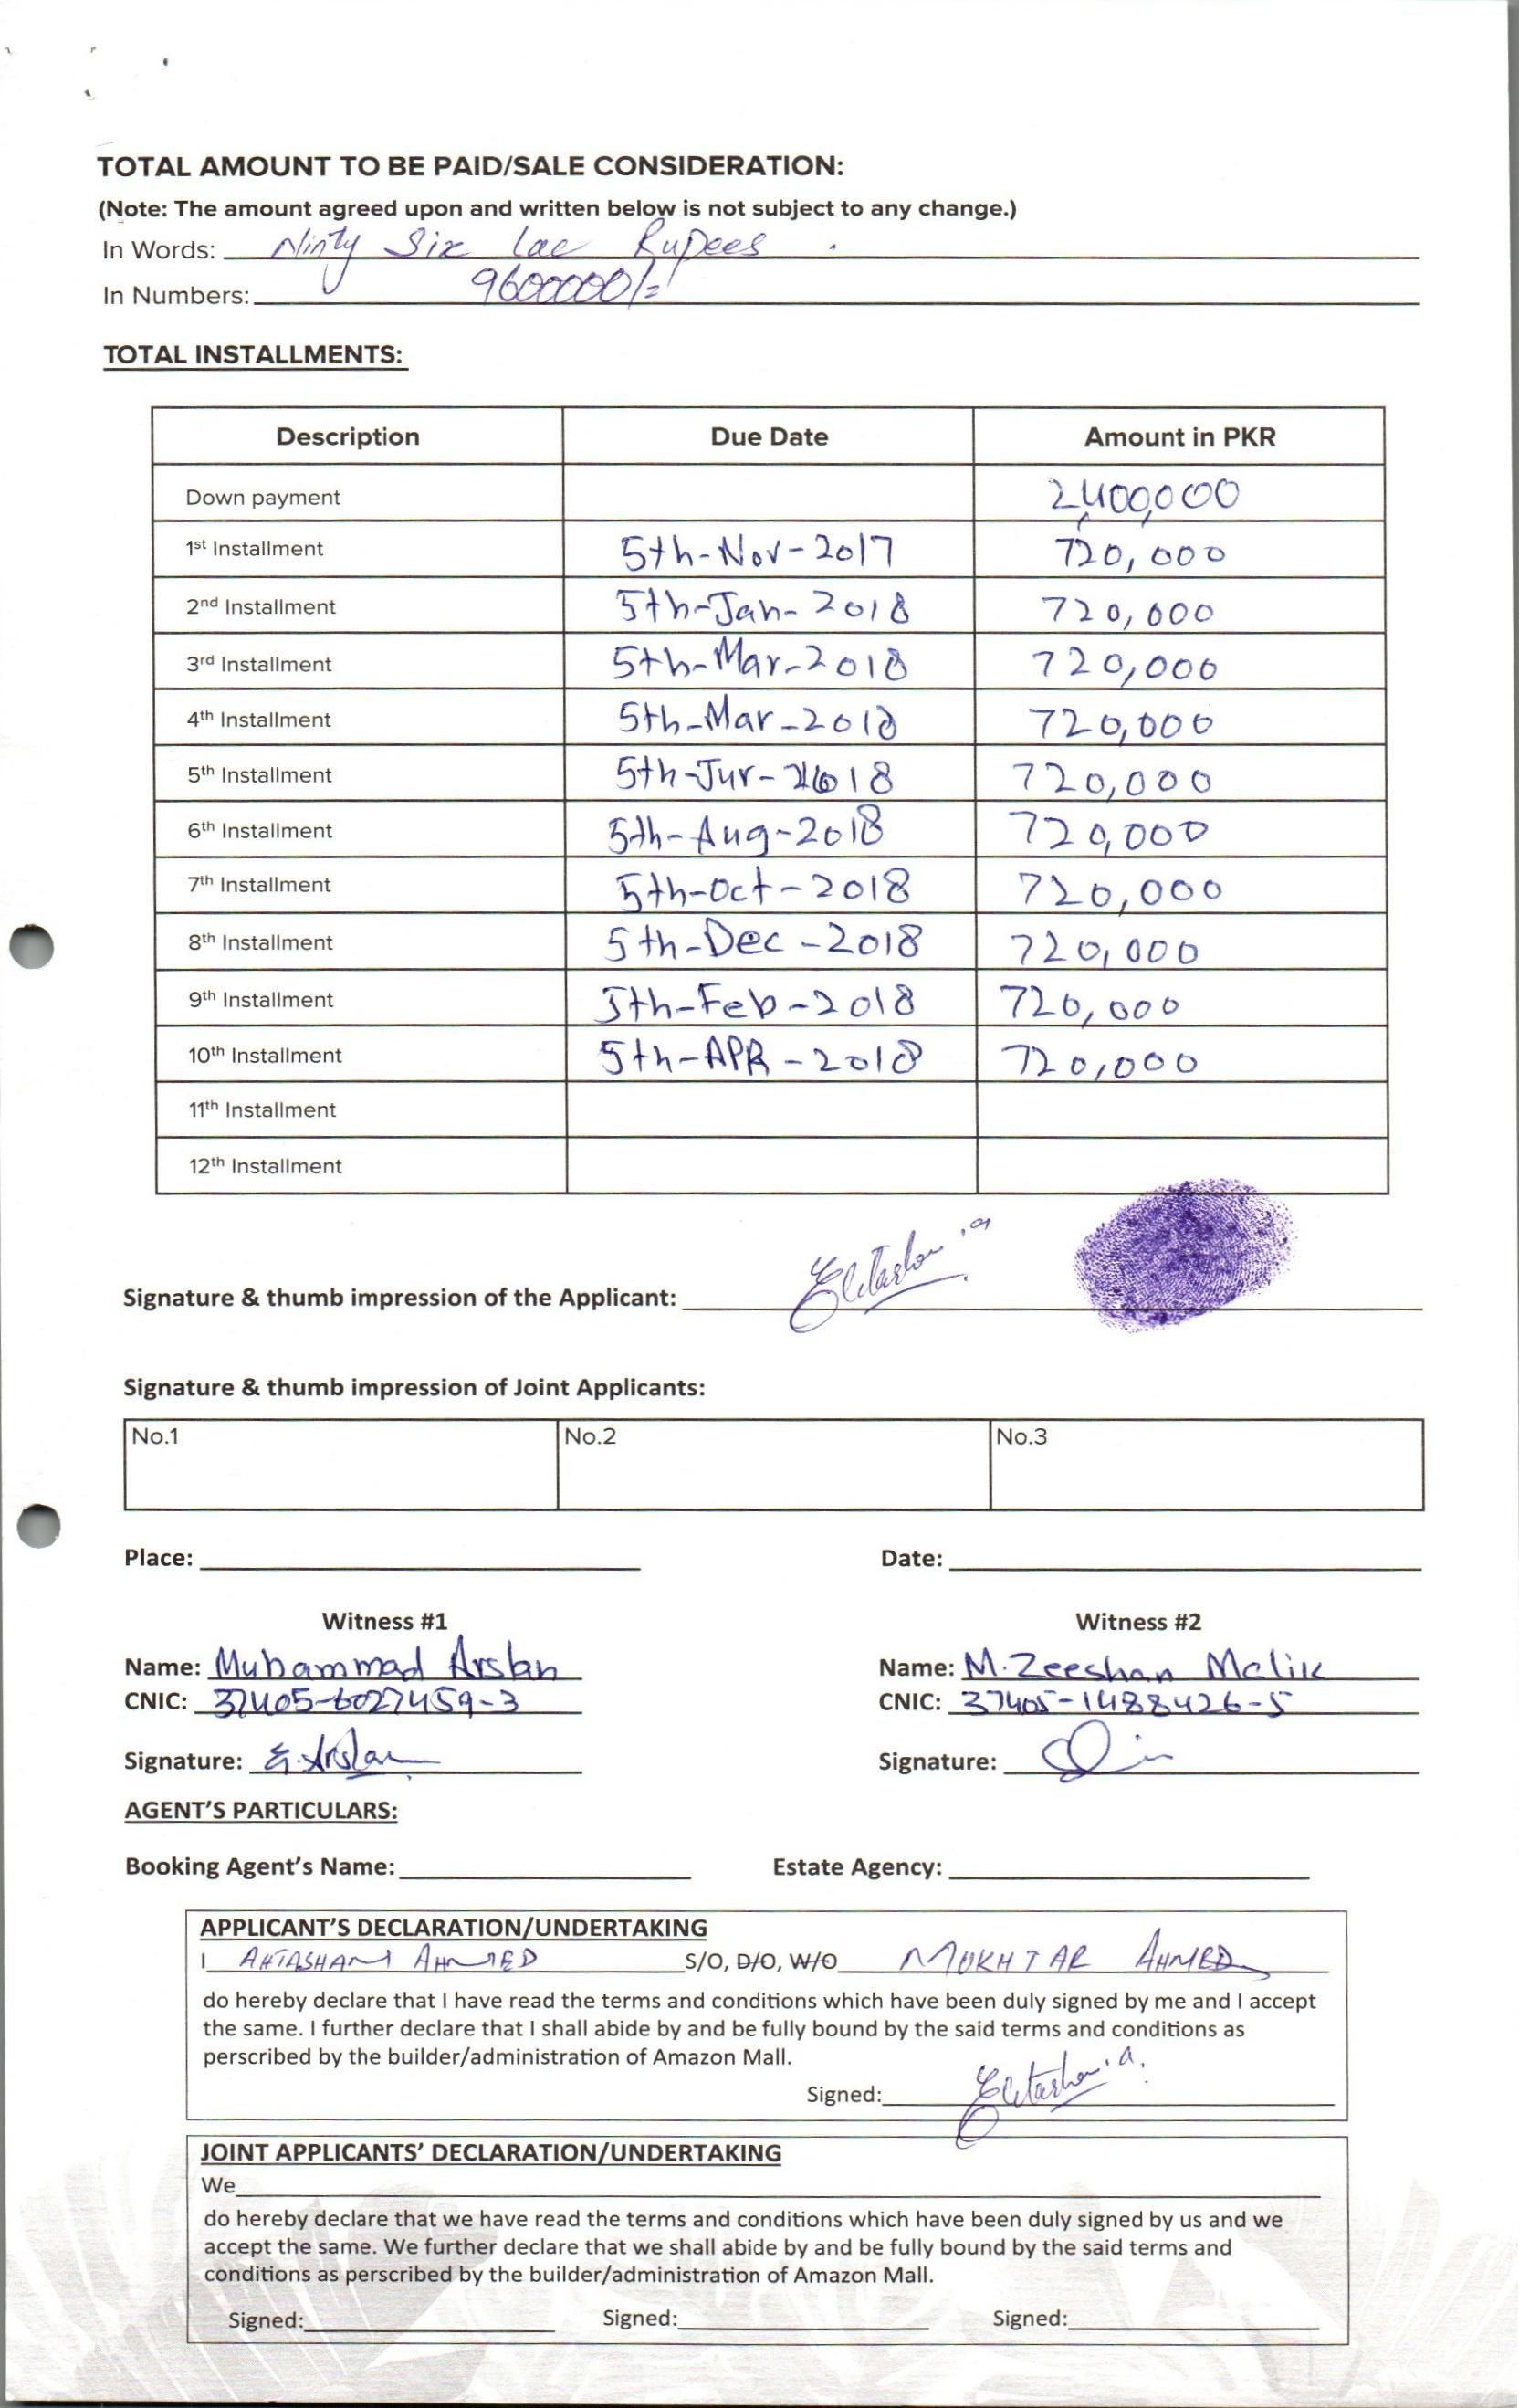 TOTAL AMOUNT TO BE PAID/SALE CONSIDERATION:
(Note: The amount agreed upon and written below is not subject to any change.)
In Words: Ninty Six Lac Rupees
In Numbers: 9600000/=
TOTAL INSTALLMENTS:
Description Due Date Amount in PKR
Down payment 2,400,000
1st Installment 5th-Nov-2017 720,000
2nd Installment 5th-Jan-2018 720,000
3rd Installment 5th-Mar-2018 720,000
4th Installment 5th-Mar-2018 720,000
5th Installment 5th-Jur-2018 720,000
6th Installment 5th-Aug-2018 720,000
7th Installment 5th-Oct-2018 720,000
8th Installment 5th-Dec-2018 720,000
9th Installment 5th-Feb-2018 720,000
10th Installment 5th-APR-2018 720,000
11th Installment
12th Installment
Signature & thumb impression of the Applicant:
Signature & thumb impression of Joint Applicants:
No.1 No.2 No.3
Place: Date:
Witness #1 Witness #2
Name: Muhammad Arslan Name: M. Zeeshan Malik
CNIC: 37405-6027459-3 CNIC: 37405-1488426-5
Signature: Signature:
AGENT'S PARTICULARS:
Booking Agent's Name: Estate Agency:
APPLICANT'S DECLARATION/UNDERTAKING
I AHTASHAM AHMED S/O, D/O, W/O MUKHTAR AHMED
do hereby declare that I have read the terms and conditions which have been duly signed by me and I accept
the same. I further declare that I shall abide by and be fully bound by the said terms and conditions as
perscribed by the builder/administration of Amazon Mall.
Signed:
JOINT APPLICANTS' DECLARATION/UNDERTAKING
We
do hereby declare that we have read the terms and conditions which have been duly signed by us and we
accept the same. We further declare that we shall abide by and be fully bound by the said terms and
conditions as perscribed by the builder/administration of Amazon Mall.
Signed: Signed: Signed: